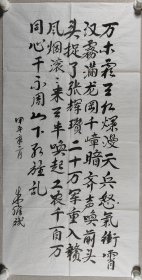 万木霜天红烂漫天兵怒气衝霄
汉雾满龙冈千嶂暗齐声唤前头
捉了张辉瓒二十万军重入赣
风烟滚滚来天半唤起工农千百万
同心干不周山下红旗乱
甲午年二月